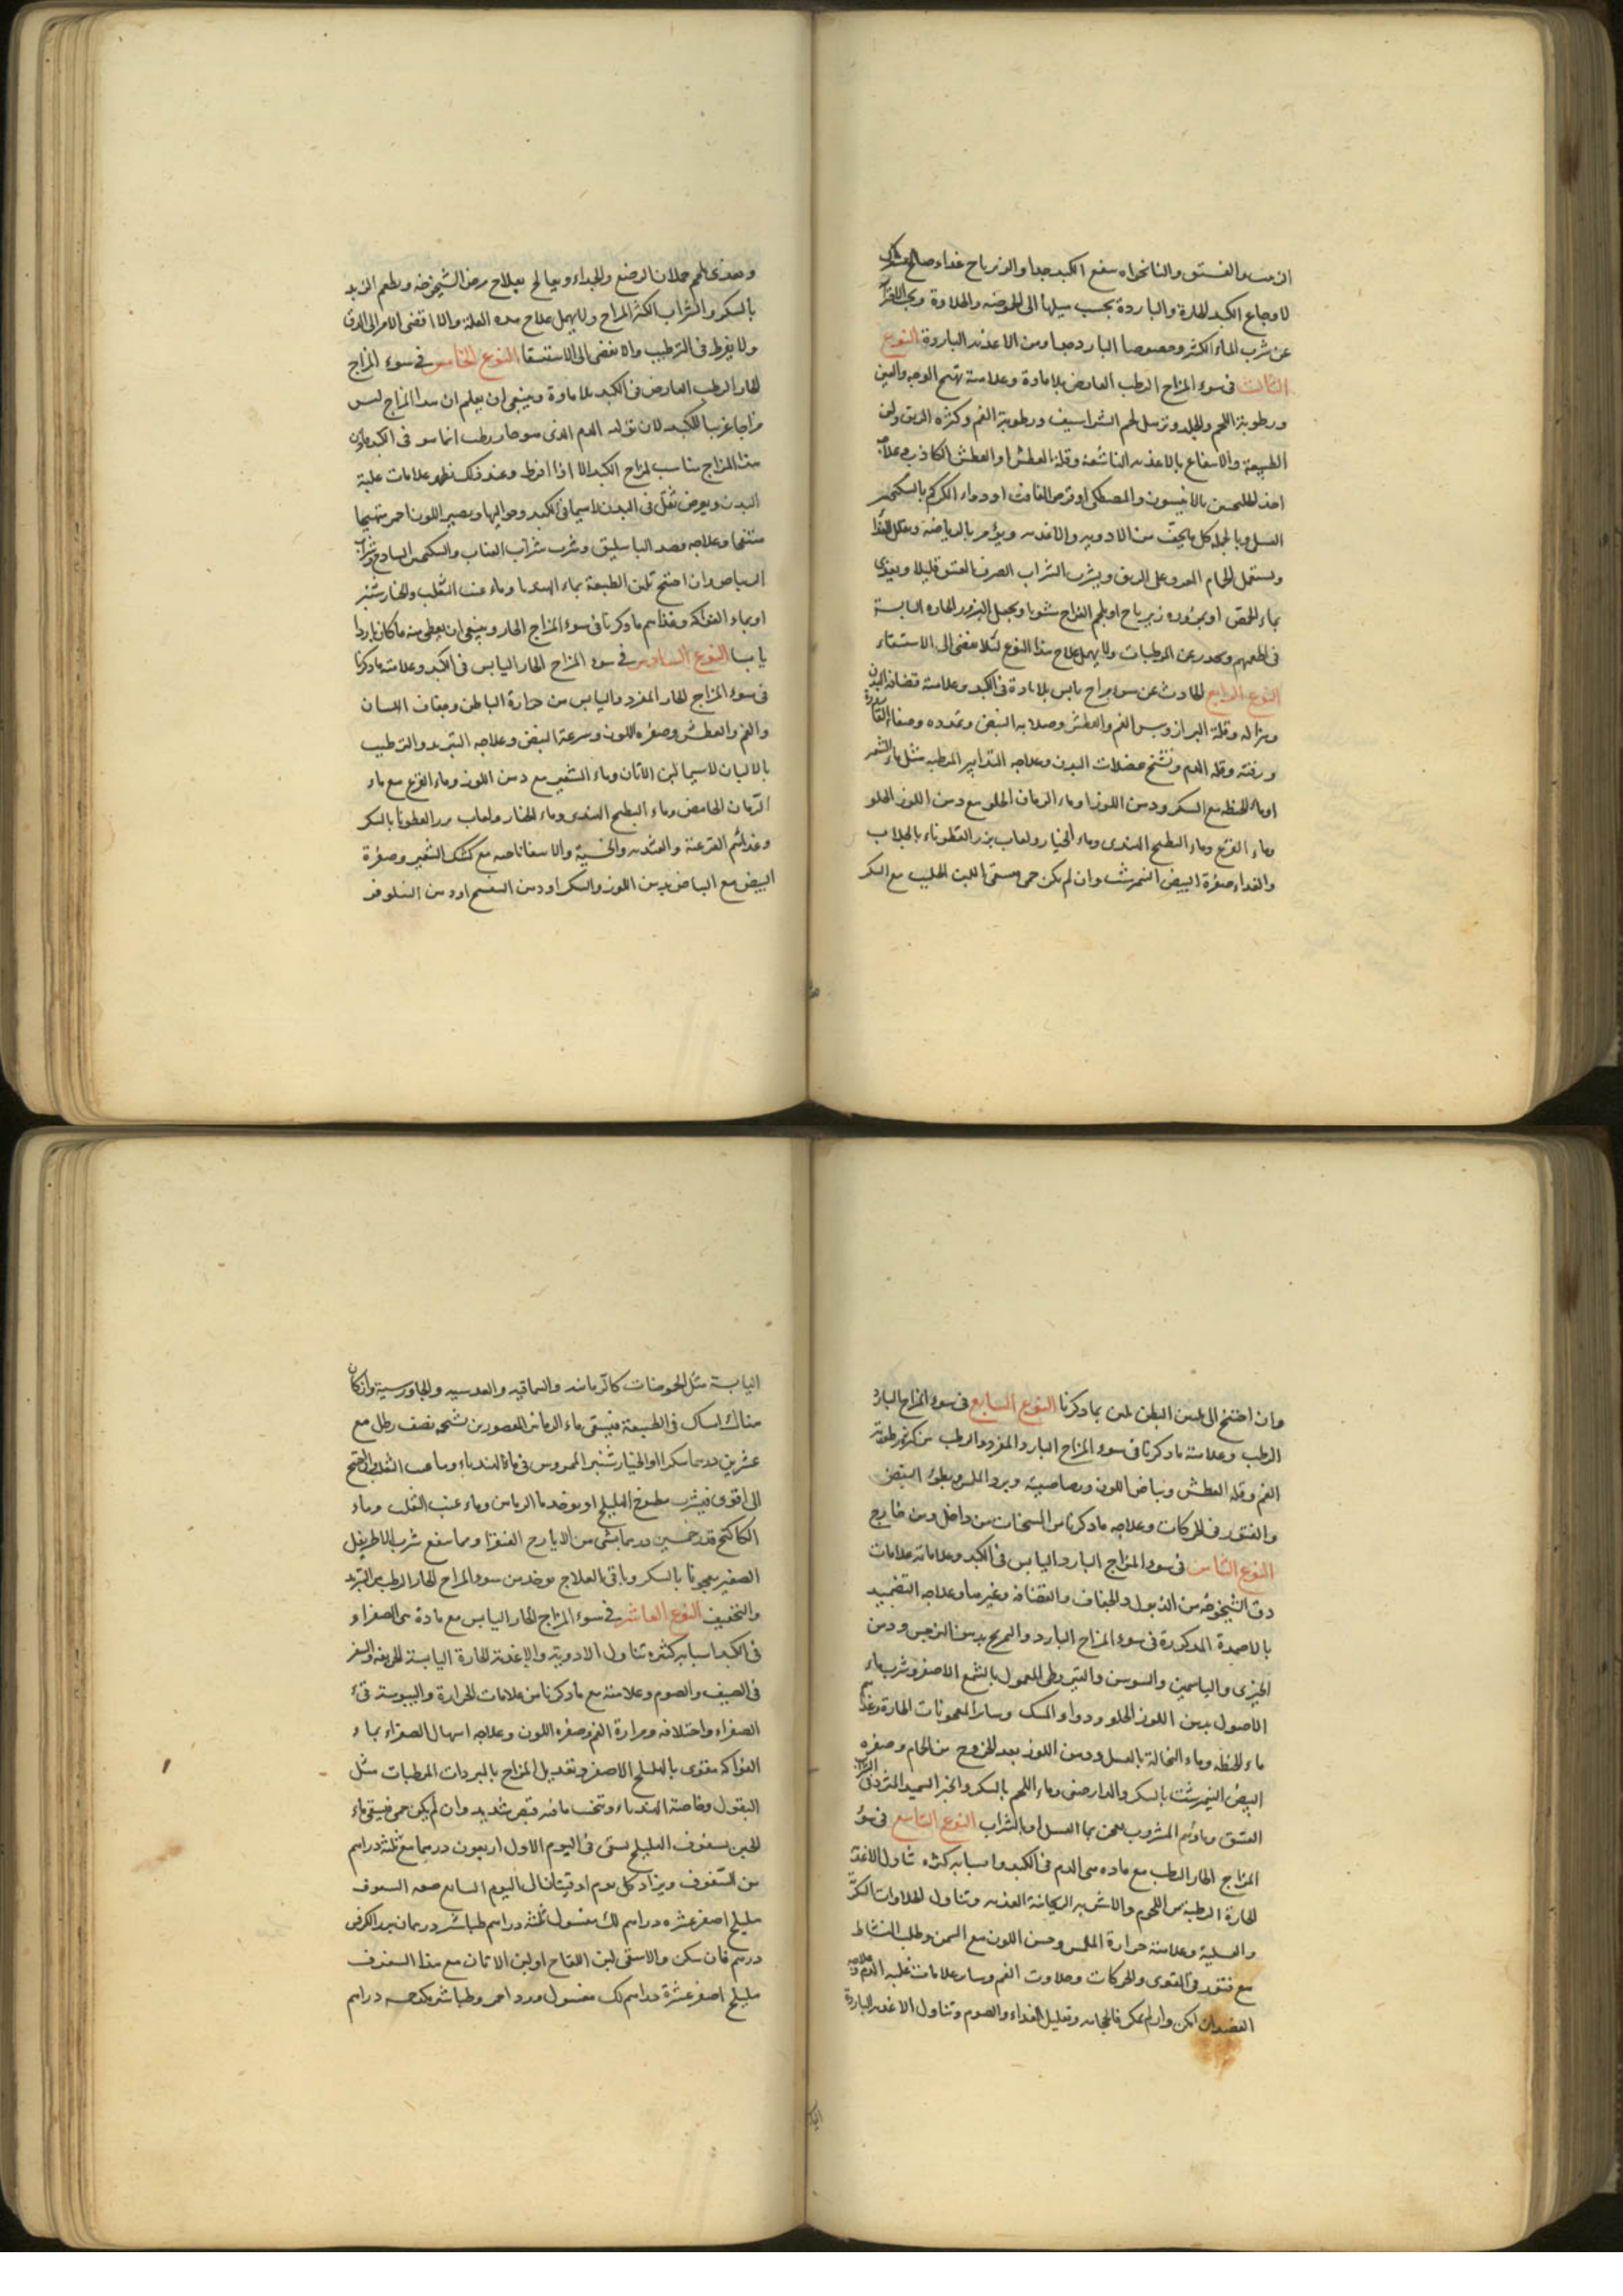 والفستق والنانخواه ينفع الكبد جدا والزيرباج غذاء صالح
لاوجاع الكبد الحارة والباردة بحسب ميلها الى الحموضه والحلاوة
عن شرب الماء الكثير وخصوصا البارد جدا ومن الاغذيه الباردة النوع
الثالث فى سوء المزاج الرطب العارض بلا مادة وعلامته تهيج الوجه والعين
ورطوبة اللحم والجلد وترهل لحم الشراسيف ورطوبة الفم وكثره الريق ولين
الطبيعة والانتفاع بالاغذيه الناشفة وقلة العطش او العطش الكاذب وعلاجه
اخذ بالانيسون والمصطكى او قرص الغافت او دواء الكركم بالسكنجبين
العسل وبالجمله كل ما يجفف من الادويه والاغذيه ويؤمر بالرياضه
ويستعمل الحمام على الريق ويشرب الشراب الصرف العتيق قليلا ويغذى
بماء الحمص او زيرباج او بلحم الفراخ مشويا ويجعل البزور الحاره اليابسة
فى اطعمتهم ويحذر عن المرطبات ولا يهمل علاج هذا النوع لئلا يفضى الى الاستسقاء
النوع الرابع الحادث عن سوء مزاج يابس بلا مادة فى الكبد وعلامته قضافة البدن
وهزاله وقلة البراز ويبس الفم والعطش وصلابة النبض وتمدده وصفاء القارورة
ورقته وقله الدم وتشنج عضلات البدن وعلاجه التدابير المرطبه مثل ماء الشعير
او ماء الحنطه مع السكر ودهن اللوز او ماء الرمان الحلو مع دهن اللوز الحلو
وماء القرع وماء البطيخ الهندى وماء الخيار ولعاب بزر القطوناء بالجلاب
والغذاء صفرة البيض النيمرشت وان لم يكن حمى يسقى اللبن الحليب مع السكر
ويغذى بلحم حملان الرضع والجداء ويعالج بعلاج مرض الشيخوخه ويطعم الزبد
بالسكر والشراب الكثير المزاج ولا يهمل علاج هذه العلة والا افضى الامر الى الدق
ولا يفرط فى الترطيب والا يفضى الى الاستسقا النوع الخامس فى سوء المزاج
الحار الرطب العارض فى الكبد بلا مادة وينبغى ان يعلم ان هذا المزاج ليس
مزاجا غريبا للكبد لان تولد الدم الذى هو حار رطب انما هو فى الكبد
هذا المزاج مناسب لمزاج الكبد الا اذا افرط وعند ذلك تظهر علامات غلبة
الدم ويعرض ثقل فى البدن لاسيما فى الكبد وحواليها ويصير اللون احمر متهيجا
منتفخا وعلاجه فصد الباسليق وشرب شراب العناب والسكنجبين الساذج وشراب
الرياس وان احتيج تلين الطبيعة بماء الهندبا وماء عنب الثعلب والخيارشنبر
او بماء الفواكه وغذاءهم ما ذكرنا فى سوء المزاج الحار وينبغى ان يعطى منه ما كان باردا
يابسا النوع السادس فى سوء المزاج الحار اليابس فى الكبد وعلامته ما ذكرنا
فى سوء المزاج الحار المفرد واليابس من حرارة الباطن وجفاف اللسان
والفم والعطش وصفره اللون وسرعة النبض وعلاجه التبريد والترطيب
بالالبان لاسيما لبن الاتان وماء الشعير مع دهن اللوز وماء القرع مع ماء
الرمان الحامض وماء البطيخ الهندى وماء الخيار ولعاب بزر القطونا بالسكر
وغذائهم القرعية والخسية والاسفاناخيه مع كشك الشعير وصفرة
البيض مع البياض بدهن اللوز والسكر او دهن البنفسج او دهن النيلوفر
وان احتيج الى تليين البطن لين بما ذكرنا النوع السابع فى سوء المزاج البارد
الرطب وعلامته ما ذكرنا فى سوء المزاج البارد المفرد والرطب من كثره رطوبة
الفم وقله العطش وبياض اللون ورصاصيته وبرد الملمس وبطوء النبض
والفتور فى الحركات وعلاجه ما ذكرنا من المسخنات من داخل ومن خارج
النوع الثامن فى سوء المزاج البارد اليابس فى الكبد وعلاماته علامات
دق الشيخوخه من الذبول والجفاف والقضافه وغيرها وعلاجه التضميد
بالاضمدة المذكورة فى سوء المزاج البارد والتمريخ بدهن النرجس ودهن
الخيرى والياسمين والسوسن والقيروطى المعمول بالشمع الاصفر وشرب ماء
الاصول بدهن اللوز الحلو ودواء المسك وسائر المعجونات الحارة وغذاؤهم
ماء الحنطه وماء النخالة بالعسل ودهن اللوز بعد الخروج من الحمام وصفره
البيض النيمرشت بالسكر والدارصينى وماء اللحم بالسكر والخبز السميد الثريد فى الشراب
العتيق وماؤهم المشروب يمزج بماء العسل او بالشراب النوع التاسع فى سوء
المزاج الحار الرطب مع ماده هى الدم فى الكبد واسبابه كثره تناول الاغذية
الحارة الرطبة من اللحوم والاشربه الريحانية العذبه وتناول الحلاوات
والعسلية وعلامته حرارة الملمس وحسن اللون مع السمن وطلب النشاط
مع فتور فى القوى والحركات وحلاوت الفم وسائر علامات غلبه الدم وعلاجه
الفصد ان امكن وان لم يمكن فالحجامه وتقليل الغذاء والصوم وتناول الاغذيه الباردة
اليابسة مثل الحموضات كالرمانيه والسماقيه والعدسيه والجاورسية وان كان
هناك امساك فى الطبيعة فيسقى ماء الرمانين المعصور بن شحمه نصف رطل مع
عشرين درهما سكرا او الخيارشنبر الممروس فى ماء الهندباء وماء عنب الثعلب وان احتيج
الى اقوى فيشرب مطبوخ الهليلج او يوخذ ماء الرياس وماء عنب الثعلب وماء
الكاكنج قدر خمسين درهما بشى من الايارج الفيقرا ومما ينفع شرب الاطريفل
الصغير معجونا بالسكر وباقى العلاج يوخذ من سوء المزاج الحار الرطب من التبريد
والتخفيف النوع العاشر فى سوء المزاج الحار اليابس مع مادة هى الصفراء
فى الكبد اسبابه كثره تناول الادوية والاغذية الحارة اليابسة الحريفه والسفر
فى الصيف والصوم وعلامته مع ما ذكرنا من علامات الحرارة واليبوسة قىء
الصفراء واختلافه ومرارة الفم وصفره اللون وعلاجه اسهال الصفراء بماء
الفواكه مقوى بالهليلج الاصفر وتعديل المزاج بالمبردات المرطبات مثل
البقول وخاصة الهندباء وتجنب ما فيه قبض شديد وان لم يكن حمى فيسقى ماء
الجبن بسفوف الهليلج يسقى فى اليوم الاول اربعون درهما مع ثلثة دراهم
من السفوف ويزاد كل يوم اوقيتان الى اليوم السابع صفه السفوف
هليلج اصفر عشره دراهم لك مغسول ثلثة دراهم طباشير درهمان بزر الكرفس
درهم فان سكن والا سقى لبن اللقاح او لبن الاتان مع هذا السفوف
هليلج اصفر عشرة دراهم لك مغسول ورد احمر وطباشير مكد خمسه دراهم